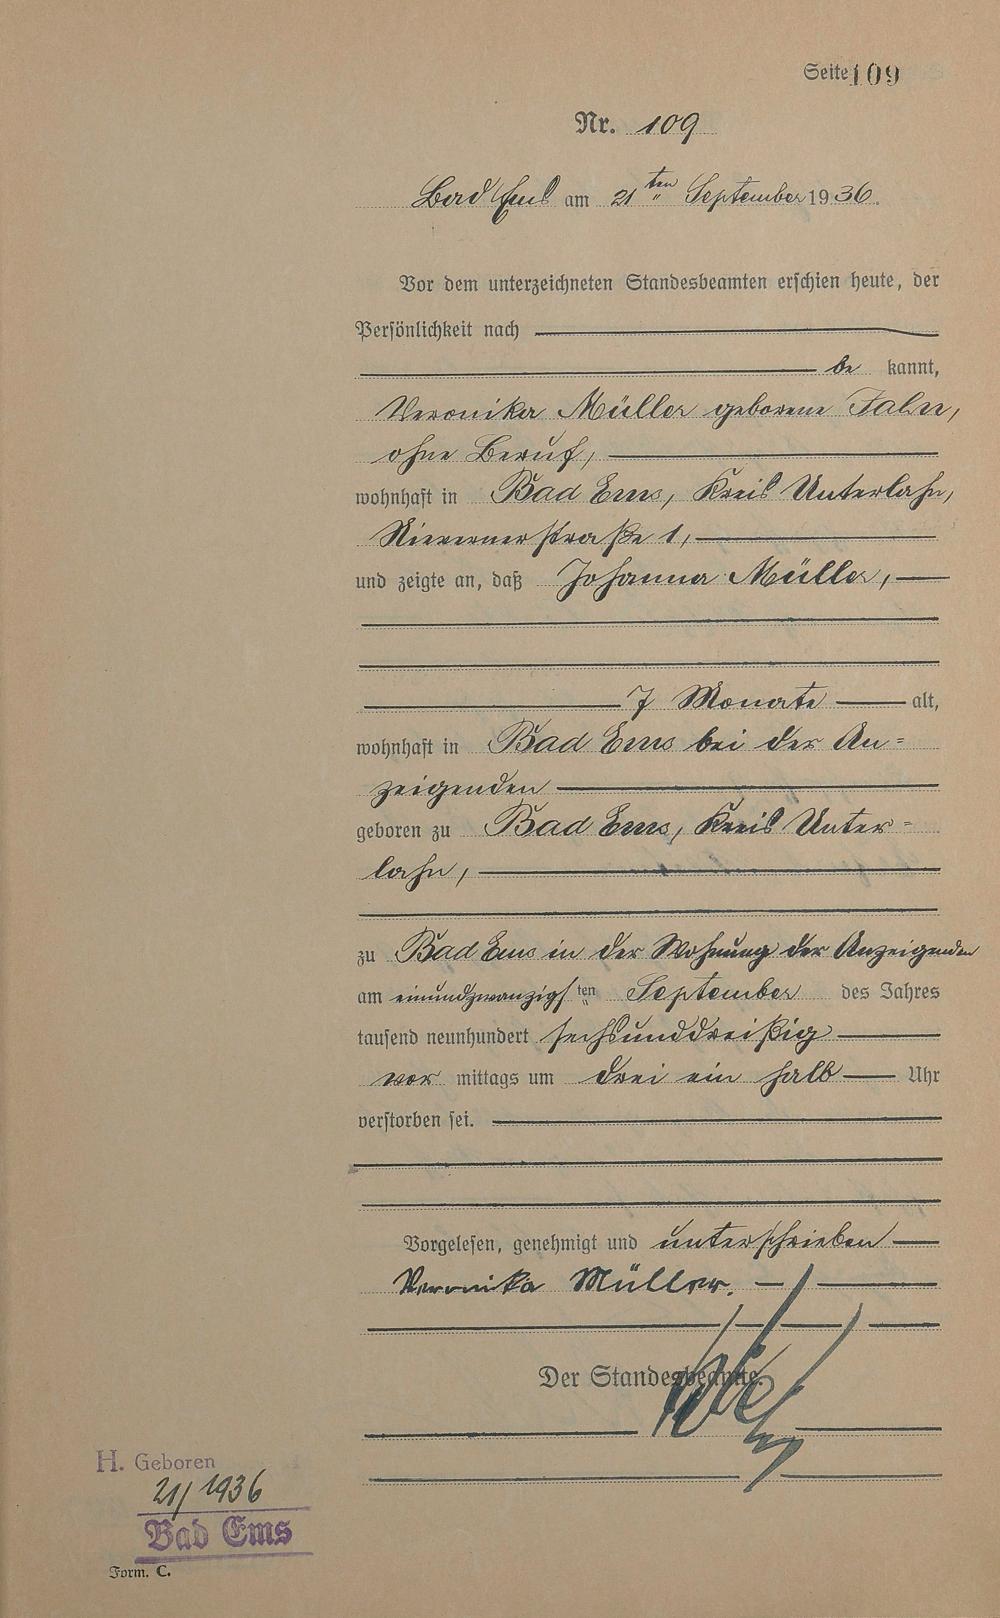 Seite 109
Nr. 109
Bad Ems am 21ten September 1936.
Vor dem unterzeichneten Standesbeamten erschien heute, der
Persönlichkeit nach
be kannt,
Veronika Müller geborene
ohne Beruf,
wohnhaft in Bad Ems, Kreis Unterlahn,
Nievernerstraße 1,
und zeigte an, daß Johanna Müller,
7 Monate alt,
wohnhaft in Bad Ems bei der An=
zeigenden
geboren zu Bad Ems, Kreis Unter=
lahn,
zu Bad Ems in der Wohnung der Anzeigenden
am einundzwanzigsten September des Jahres
tausend neunhundert sechsunddreißig
vor mittags um drei ein halb Uhr
verstorben sei.
Vorgelesen, genehmigt und unterschrieben
Veronika Müller.
Der Standesbeamte.
H. Geboren
21/1936
Bad Ems
Form. C.